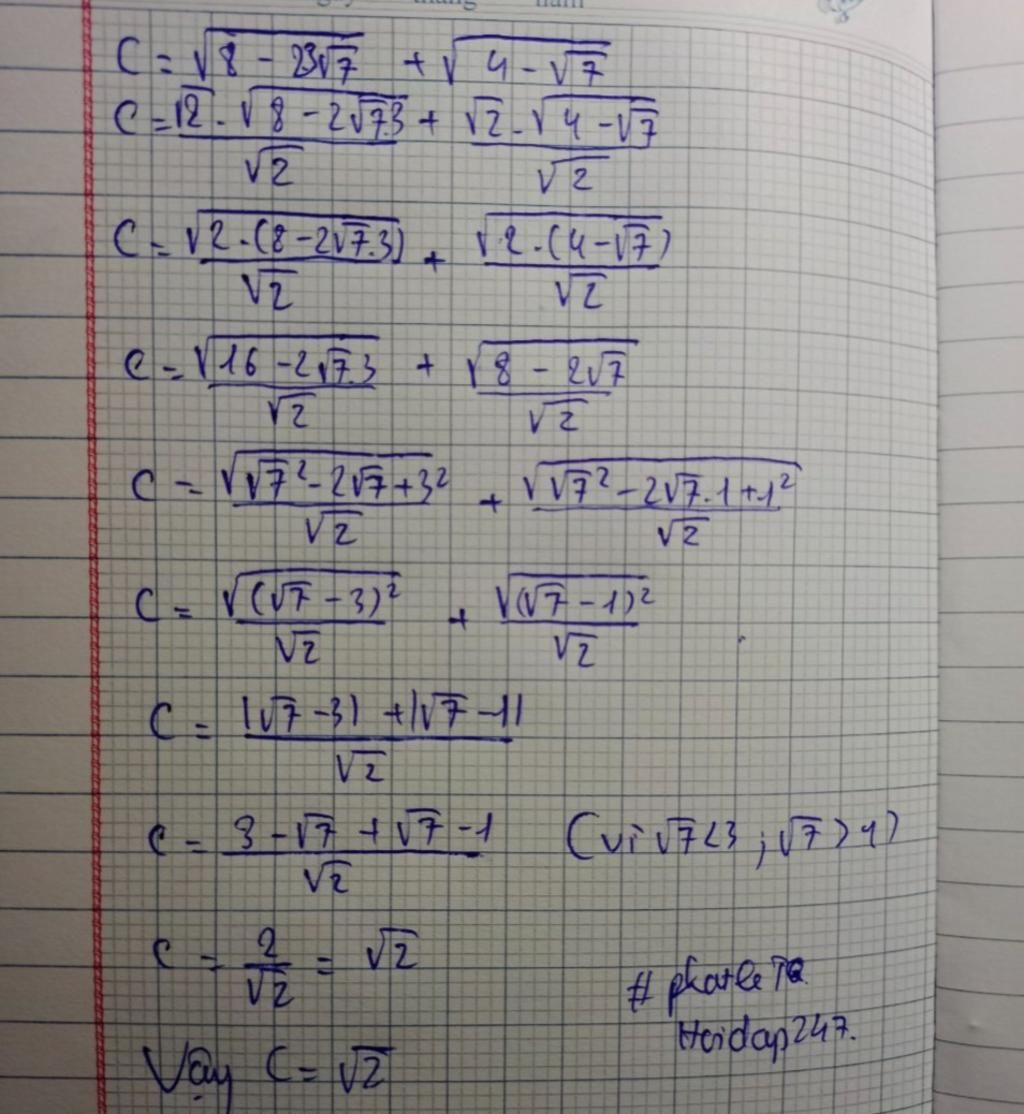 C = √(8 - 23√7) + √(4 - √7)
C = (√2 . √(8 - 2√7.3))/√2 + (√2 . √(4 - √7))/√2
C = √(2 . (8 - 2√7.3))/√2 + √(2 . (4 - √7))/√2
C = √(16 - 2√7.3)/√2 + √(8 - 2√7)/√2
C = √(√7² - 2√7 + 3²)/√2 + √(√7² - 2√7.1 + 1²)/√2
C = √((√7 - 3)²)/√2 + √((√7 - 1)²)/√2
C = (|√7 - 3| + |√7 - 1|)/√2
C = (3 - √7 + √7 - 1)/√2 (vì √7 < 3 ; √7 > 1)
C = 2/√2 = √2
Hoidap247.
Vậy C = √2